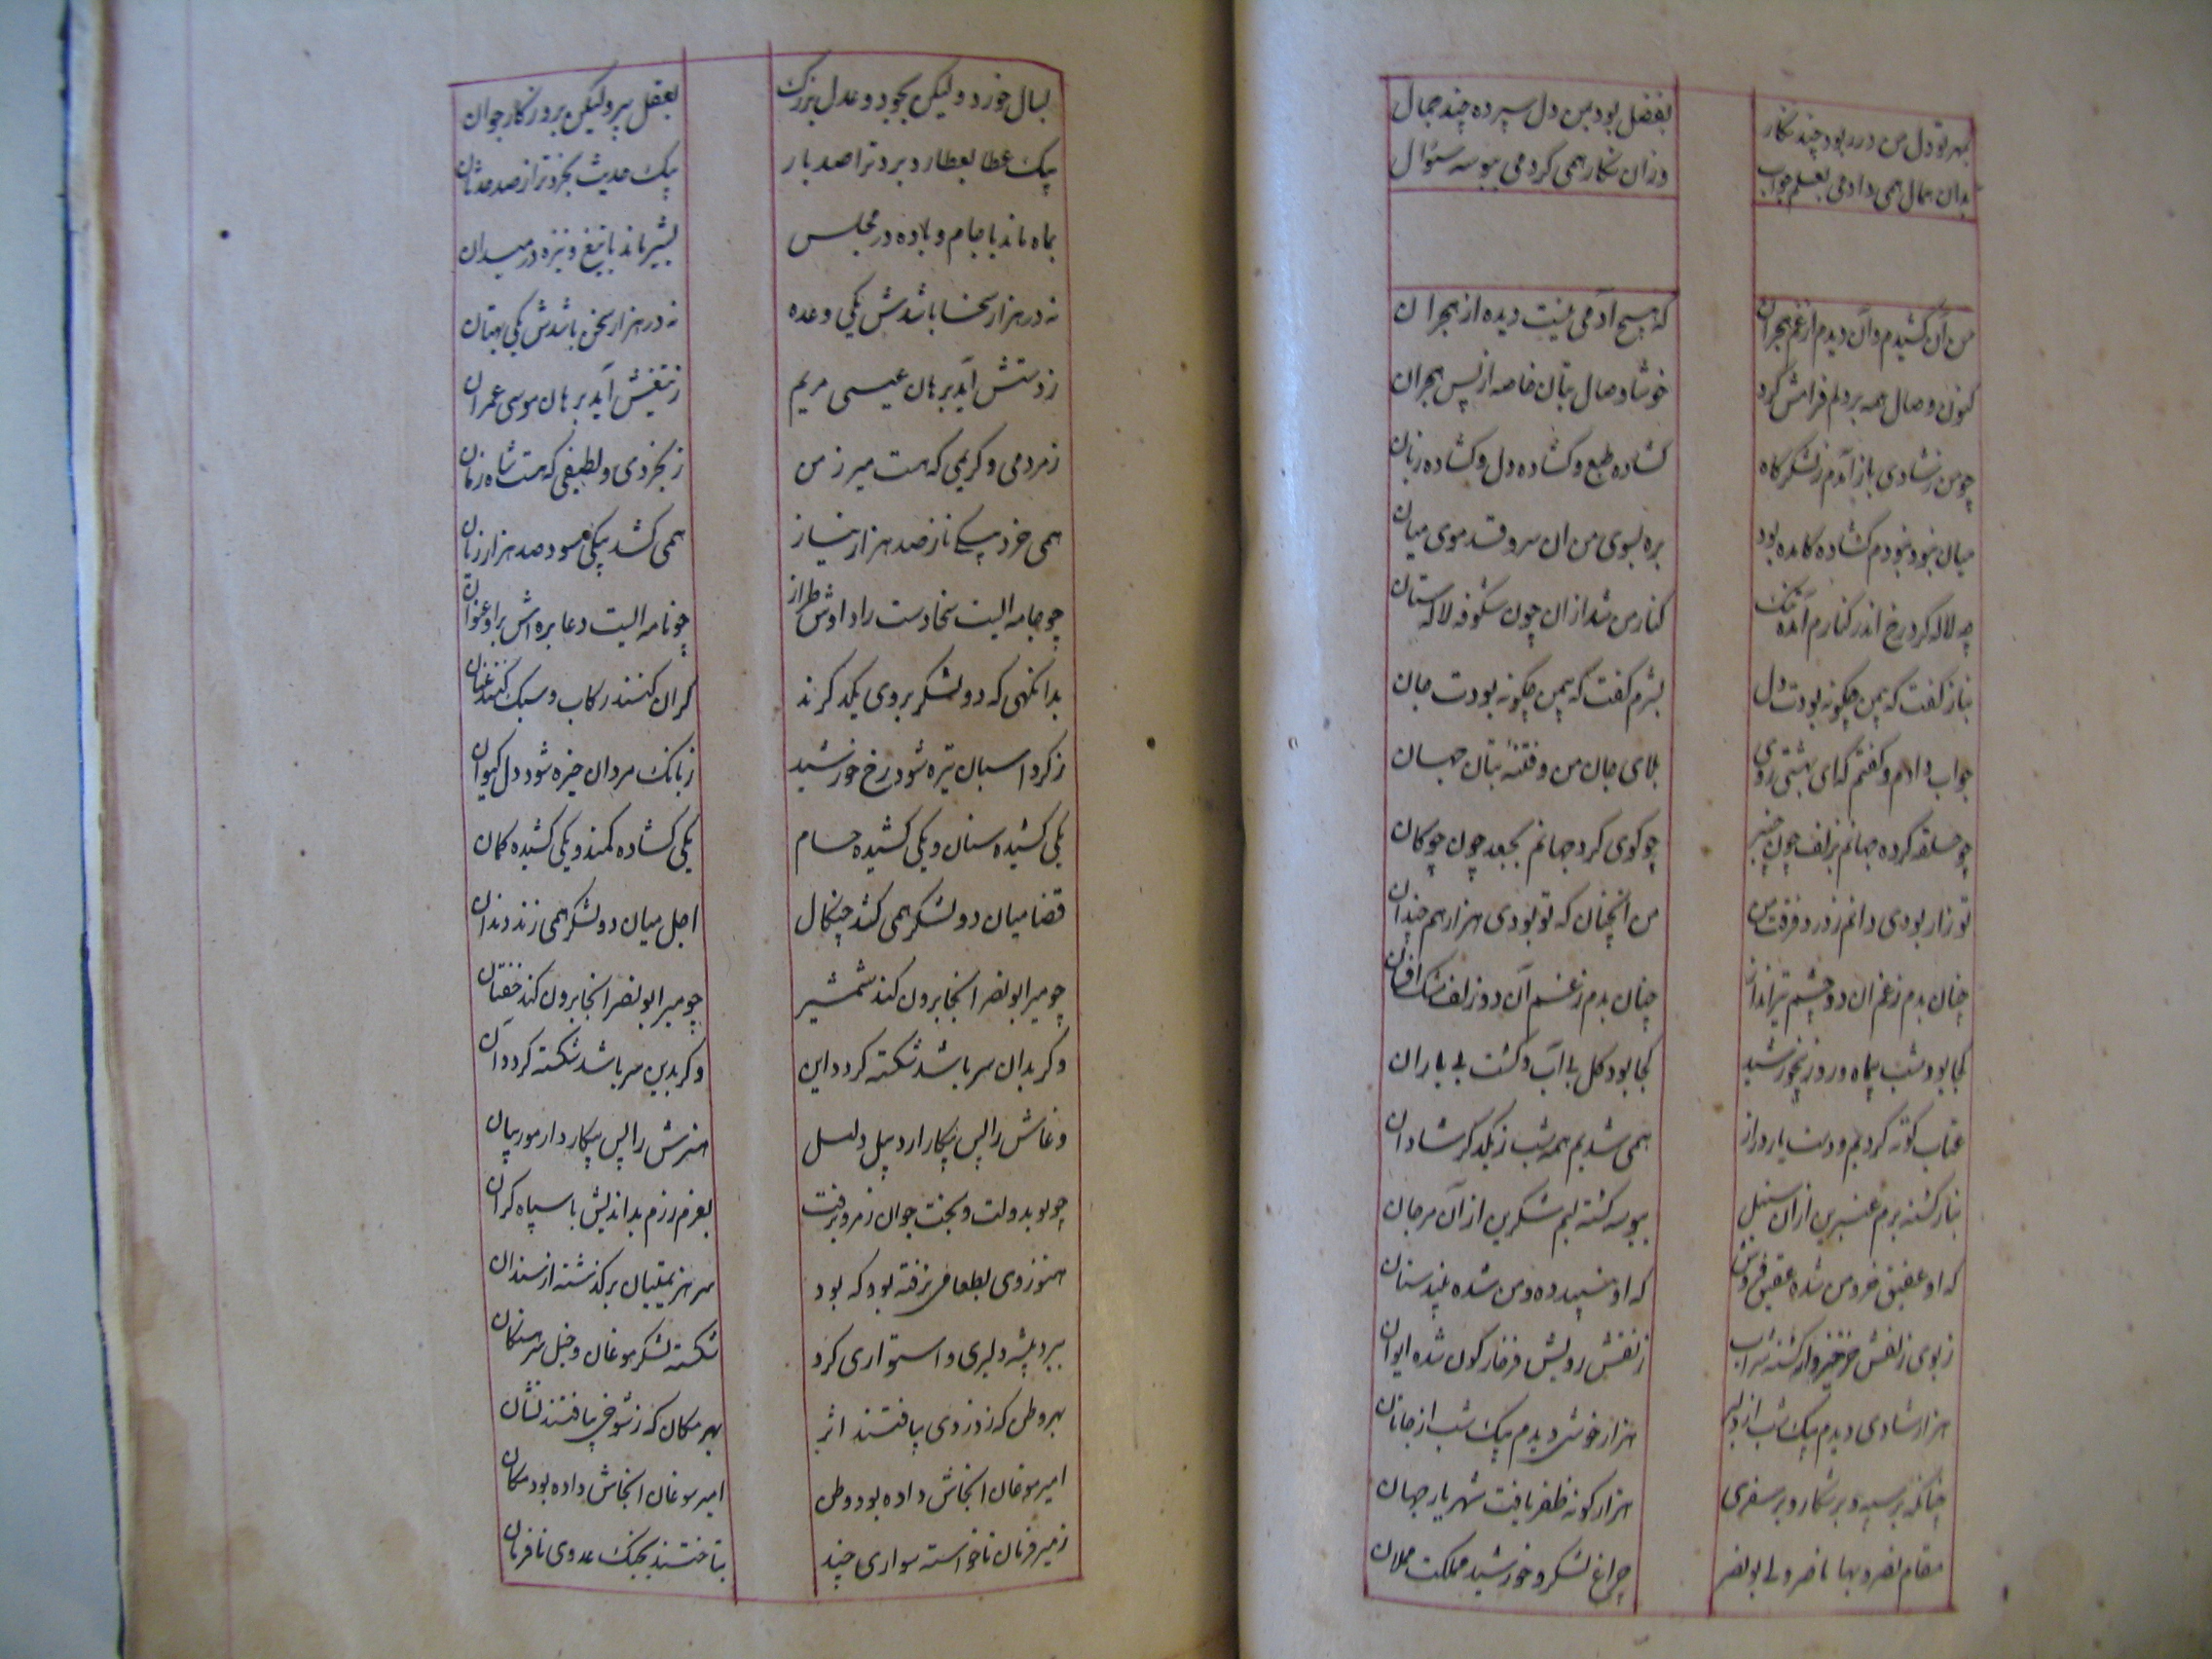 بمهر تو دل من درربود چند نگار بفضل بود بمن دل سپرده چند جمال
بدان جمال همی دادمی بعلم جواب وزان نگار همی کردمی ببوسه سئوال
من آن کشیدم و آن دیدم از غم هجران که هیچ آدمی نیست دیده از هجران
کنون وصال همه بر دلم فرامش کرد خوشا وصال بتان خاصه از پس هجران
چو من ز شادی باز آمدم ز لشکرگاه گشاده طبع و گشاده دل و گشاده زبان
میان نبود نبودم گشاده کامده بود بره بسوی من ان سرو قد موی میان
چه لاله کرد رخ اندر کنارم آمد تنگ کنار من شد از ان چون شکوفه لاله ستان
بناز گفت که بیمن چگونه بودت دل بشرم گفت که بیمن چگونه بودت جان
جواب دادم و گفتم که ای بهشتی روی بلای جان من و فتنه بتان جهان
چو حلقه کرده جهانم بزلف چون چنبر چو کوی کرد جهانم بجعد چون چوکان
تو زار بودی دانم ز درد فرقت من من انچنان که تو بودی هزار هم چندان
چنان بدم ز غم ان دو چشم تیرانداز چنان بدم ز غم آن دو زلف مشک افشان
کجا بود شب بیماه و روز بیخورشید کجا بود گل بی آب و کشت بی باران
عتاب کوته کردیم و دست یار دراز همی شدیم همه شب ز یکدگر شادان
بناز کشته برم عنبرین از ان سنبل ببوسه گشته لبم شکرین از آن مرجان
که او عقیق خر و من شده عقیق فروش که او نبید ده و من شده نبید ستان
ز بوی زلفش خرخیزوار گشته سراب ز نقش رویش فرخار گون شده ایوان
هزار شادی دیدم بیک شب از دلبر هزار خوشی دیدم بیک شب از جانان
چنانکه بر سپه و بر شکار و بر سفری هزار گونه ظفر یافت شهریار جهان
مقام نصر و بها ناصر ولی بونصر چراغ لشکر و خورشید مملکت مملان
بسال خورد ولیکن بجود و عدل بزرگ بعقل پیر ولیکن بروزگار جوان
بیک عطا بعطارد برد ترا صد بار بیک حدیث بخرد ترا ز صد حدثان
بماه ماند با جام و باده در مجلس بشیر ماند با تیغ و نیزه در میدان
نه در هزار سخا باشدش یکی وعده نه در هزار سخن باشدش یکی بهتان
ز دستش آید برهان عیسی مریم ز تیغش آید برهان موسی عمران
ز مردمی و کریمی که هست میر زمن ز بخردی و لطیفی که هست شاه زمان
همی خرد بیکی ناز صد هزار نیاز همی کشد بیکی سود صد هزار زیان
چو جامه الیست سخا دست راد اوش طراز چو نامه الیست دعا بره اش بر او عنوان
بدانگهی که دو لشکر بروی یکدگرند گران کنند رکاب و سبک کنند عنان
ز گرد اسبان تیره شود رخ خورشید ز بانگ مردان خیره شود دل کیوان
یکی کشیده سنان و یکی کشیده حسام یکی گشاده کمند و یکی کشیده کمان
قضا میان دو لشکر همی کشد چنگال اجل میان دو لشکر همی زند دندان
چو میر ابو نصر انجا برون کند شمشیر چو میر ابو نصر انجا برون کند خفتان
وگر بدان سر باشد شکسته گردد این وگر بدین سر باشد شکسته گردد آن
چو او بدولت و بخت جوان ز مرو برفت بعزم رزم بداندیش با سپاه گران
هنوز وی بطعامی نرفته بود که بود سر هزیمتیان برگذشته از سندان
ببرد پیشه دلیری و استواری کرد شکسته لشکر موغان و خیل سرهنگان
بهر وطن که ز دزدی بیافتند اثر بهر مکان که ز شوخی بیافتند نشان
امیر موغان انجاش داده بود وطن امیر موغان انجاش داده بود مکان
ز میر فرمان ناخواسته سواری چند بتاختند بجنگ عدوی نافرمان